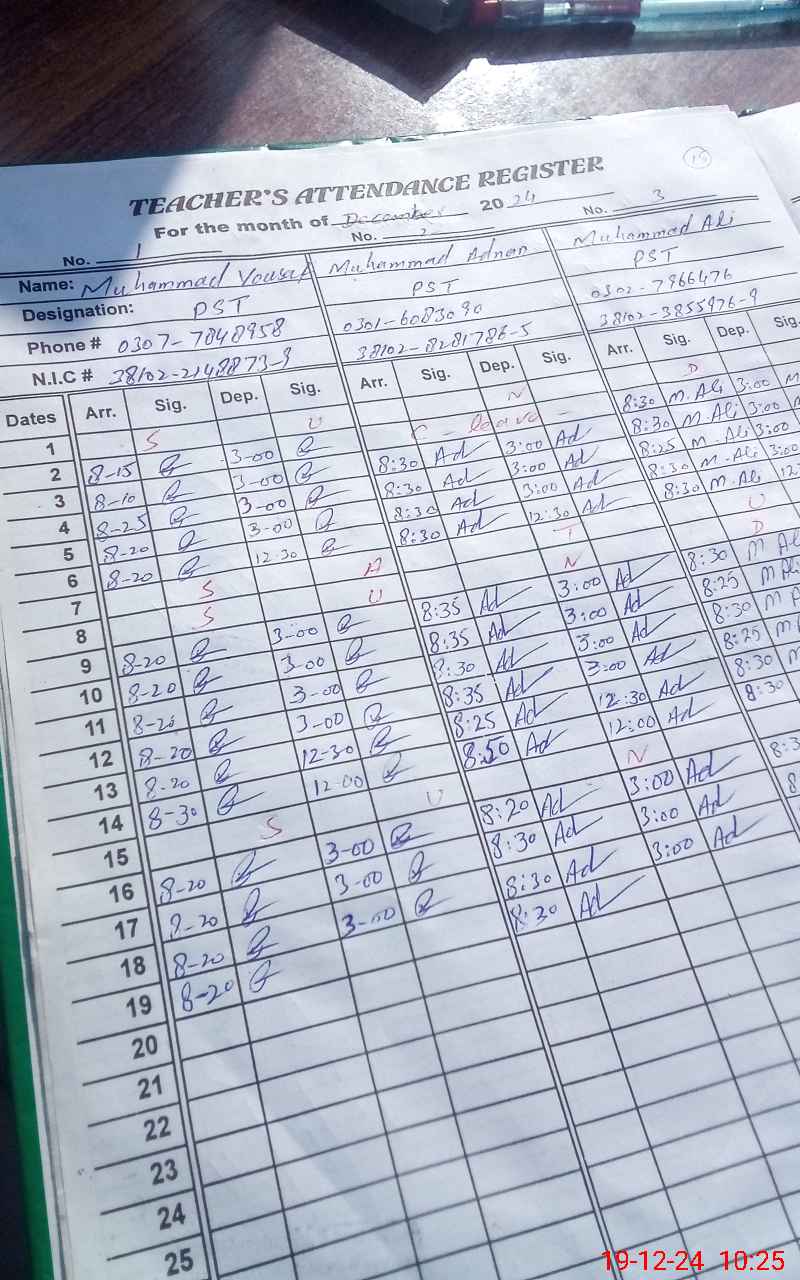 15
TEACHER'S ATTENDANCE REGISTER
For the month of December 2024
No. 1 No. 2 No. 3
Name: Muhammad Yousaf Muhammad Adnan Muhammad Ali
Designation: PST PST PST
Phone # 0307-7848958 0301-6083090 0302-7966476
N.I.C # 38102-2148873-9 38102-8281786-5 38102-3855976-9
Dates Arr. Sig. Dep. Sig. Arr. Sig. Dep. Sig. Arr. Sig. Dep. Sig.
1 S U N D
2 8-15 3-00 C - leave - 8:30 M.Ali 3:00 M
3 8-10 3-00 8:30 Ad 3:00 Ad 8:30 M.Ali 3:00 M
4 8-25 3-00 8:30 Ad 3:00 Ad 8:25 M.Ali 3:00
5 8-20 3-00 8:30 Ad 3:00 Ad 8:30 M.Ali 3:00
6 8-20 12-30 8:30 Ad 12:30 Ad 8:30 M.Ali 12:
7 S A T U
8 S U N D
9 8-20 3-00 8:35 Ad 3:00 Ad 8:30 M Ali
10 8-20 3-00 8:35 Ad 3:00 Ad 8:25 M Ali
11 8-20 3-00 8:30 Ad 3:00 Ad 8:30 M A
12 8-20 3-00 8:35 Ad 3:00 Ad 8:25 M
13 8-20 12-30 8:25 Ad 12:30 Ad 8:30 M
14 8-30 12-00 8:50 Ad 12:00 Ad 8:30
15 S U N
16 8-20 3-00 8:20 Ad 3:00 Ad 8:3
17 8-20 3-00 8:30 Ad 3:00 Ad 8
18 8-20 3-00 8:30 Ad 3:00 Ad
19 8-20 8:30 Ad
20
21
22
23
24
25
19-12-24 10:25